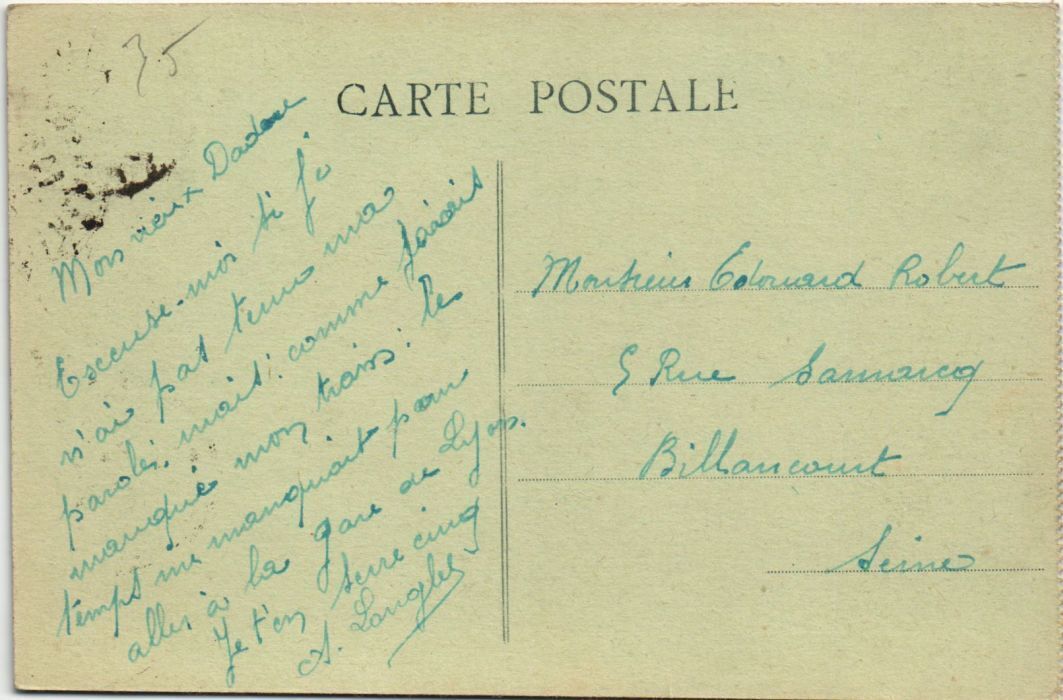 35
CARTE POSTALE
Mon vieux Dadou
Excuse-moi si je
n'ai pas tenu ma
parole, mais: comme j'avais
manqué mon train: le
temps me manquait pour
aller à la gare de Lyon.
Je t'en serre cinq
A. Langlet
Monsieur Edouard Robert
5 Rue Damarcq
Billancourt
Seine